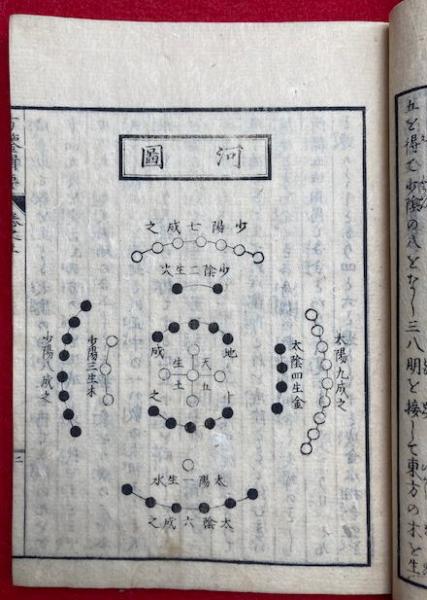 河圖
少陽七成之
少陰二生火
太陽九成之
太陰四生金
天五生土
地十成之
少陽三生木
少陰八成之
太陽一生水
太陰六成之
五を得て少陰の成となし三八朋と接して東方の木を生